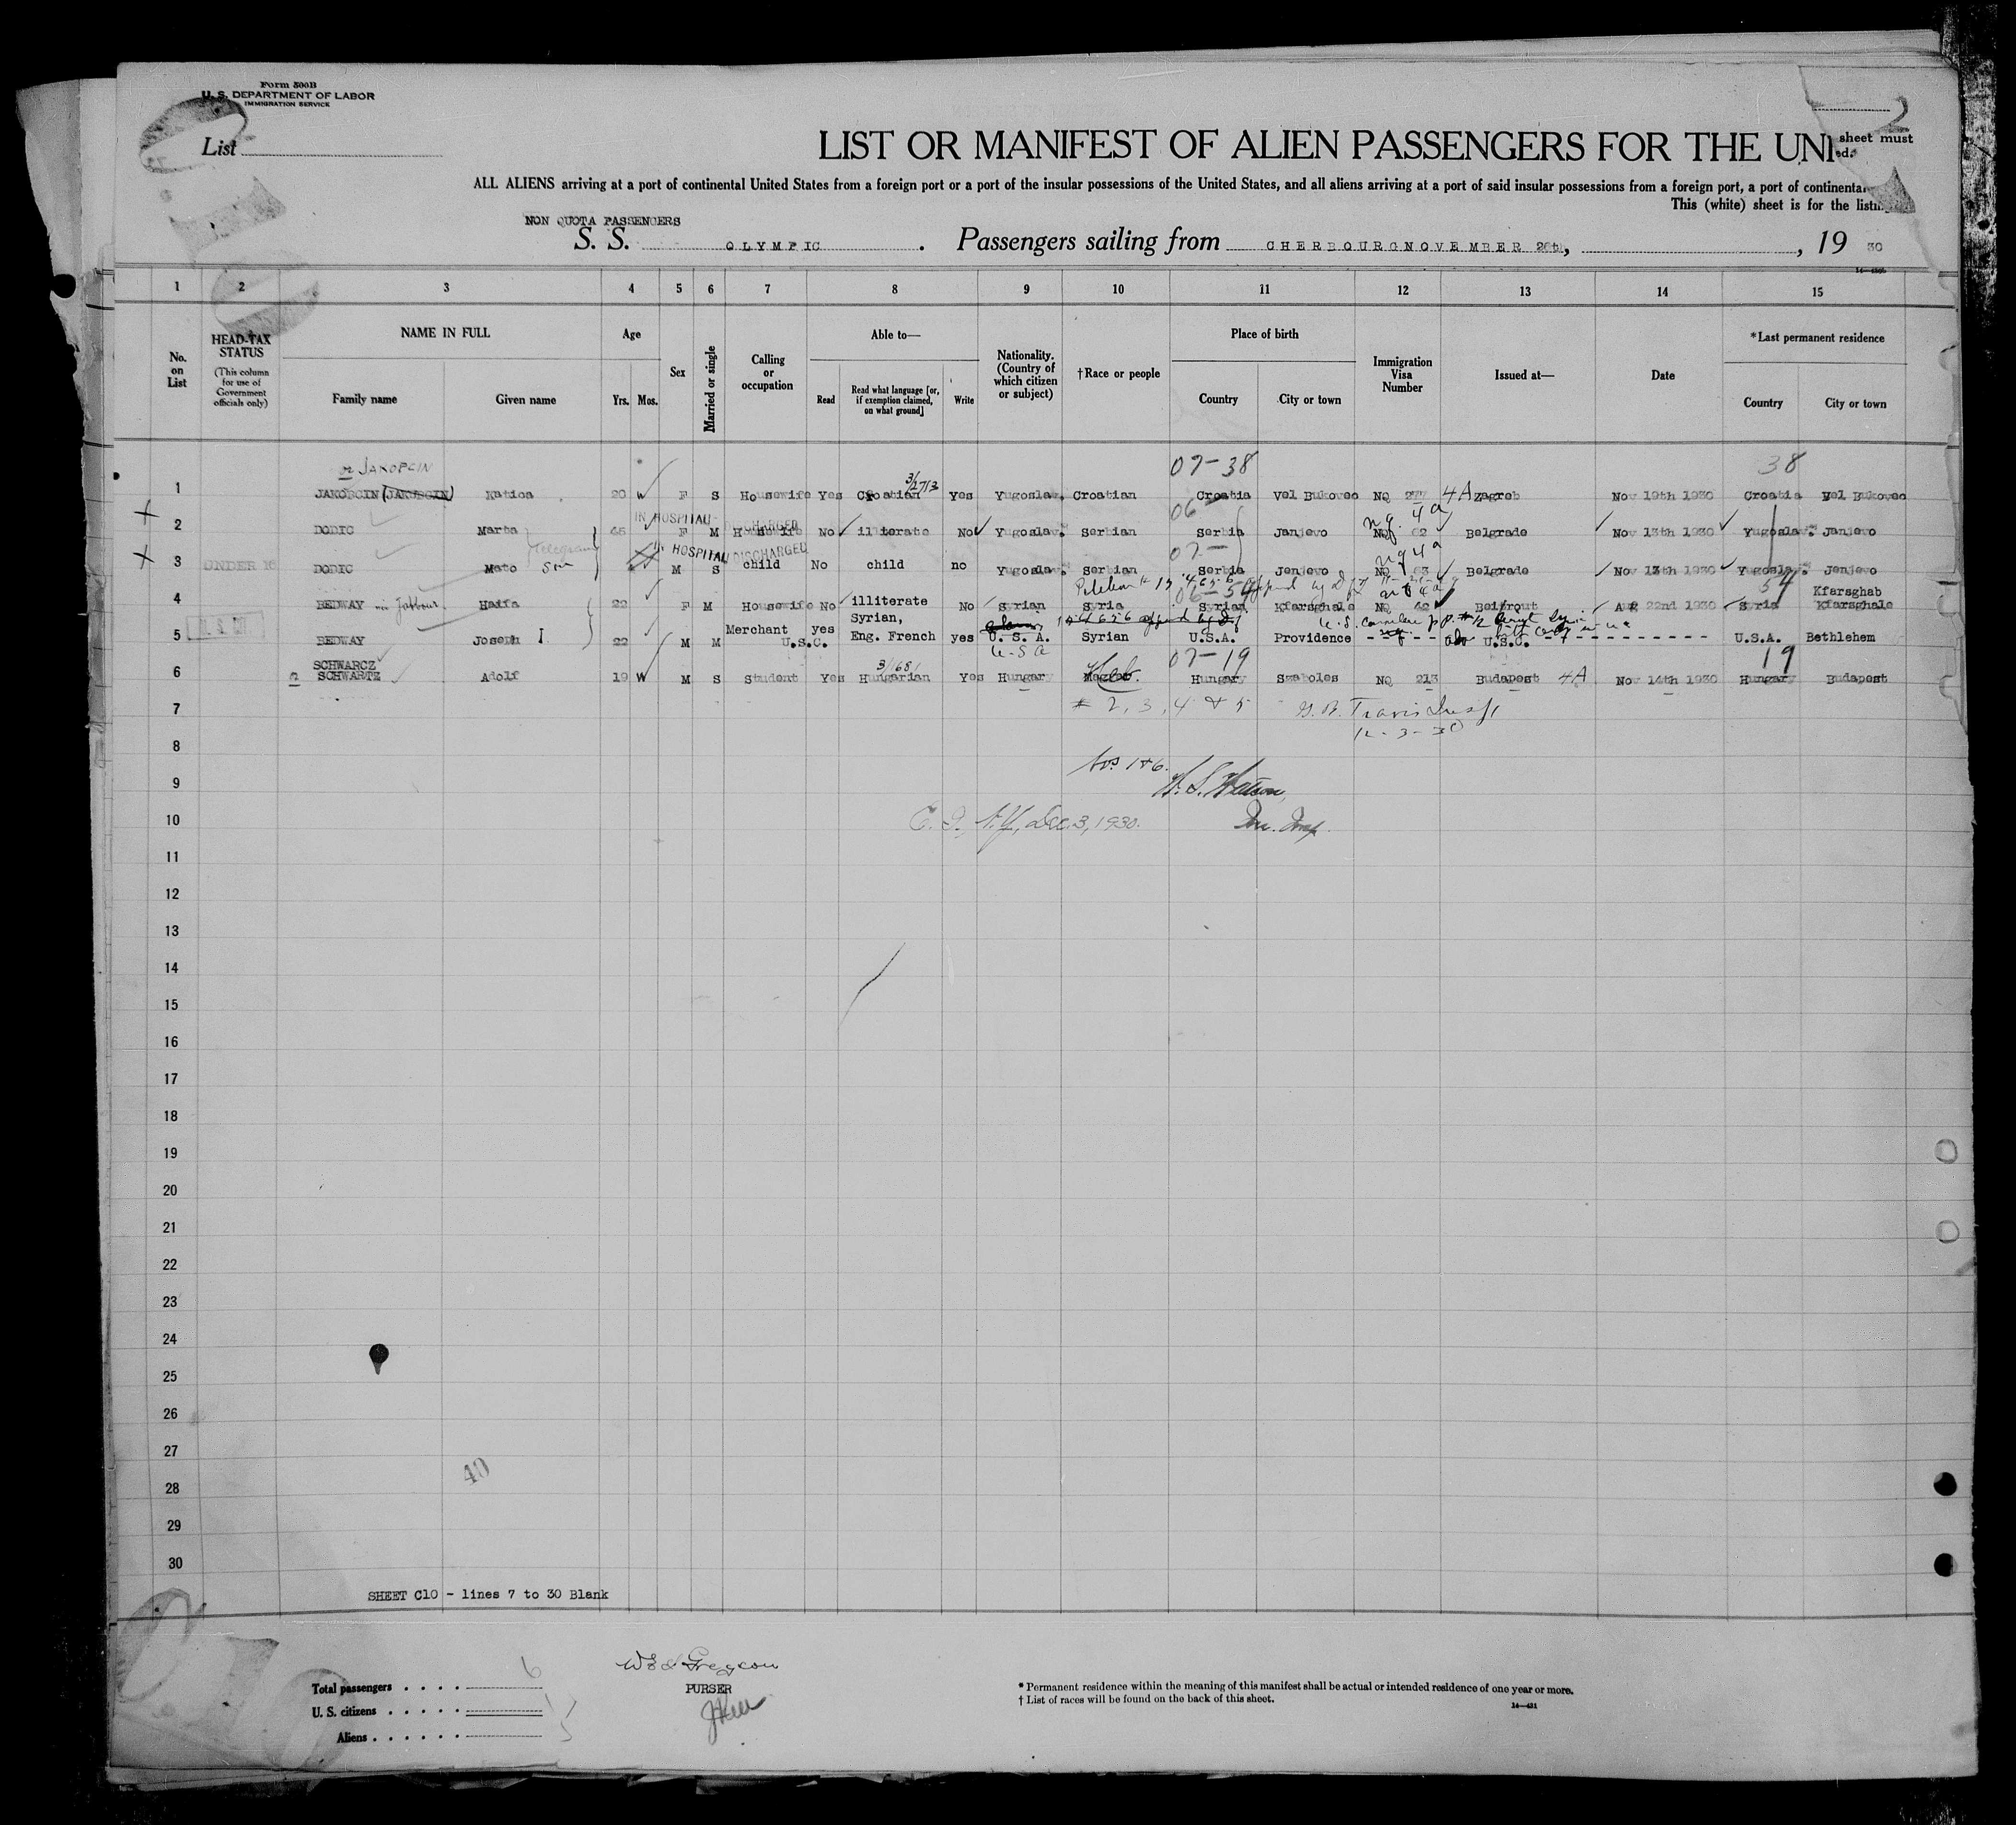 Form 500B
U. S. DEPARTMENT OF LABOR
IMMIGRATION SERVICE
2
List
LIST OR MANIFEST OF ALIEN PASSENGERS FOR THE UNI
sheet must
ed.
ALL ALIENS arriving at a port of continental United States from a foreign port or a port of the insular possessions of the United States, and all aliens arriving at a port of said insular possessions from a foreign port, a port of continental
This (white) sheet is for the listin
NON QUOTA PASSENGERS
S. S. OLYMPIC . Passengers sailing from CHERBOURG NOVEMBER 26th, , 19 30
1 2 3 4 5 6 7 8 9 10 11 12 13 14 15
No. on List
HEAD-TAX STATUS (This column for use of Government officials only)
NAME IN FULL
Family name Given name
Age
Yrs. Mos.
Sex
Married or single
Calling or occupation
Able to—
Read
Read what language [or, if exemption claimed, on what ground]
Write
Nationality. (Country of which citizen or subject)
†Race or people
Place of birth
Country City or town
Immigration Visa Number
Issued at—
Date
*Last permanent residence
Country City or town
or JAKOPCIN 07-38 38
3/2713
1 JAKOBCIN (JAKUBCIN) Katica 20 W F S Housewife Yes Croatian yes Yugoslav. Croatian Croatia Vel Bukovec NQ 277 4A Zagreb Nov 19th 1930 Croatia Vel Bukovec
IN HOSPITAL DISCHARGED 06 nq. 4a
2 DODIC Marta 45 F M Housewife No illiterate No Yugoslav. Serbian Serbia Janjevo NQ 62 Belgrade Nov 13th 1930 Yugoslav. Janjevo
Telegram IN HOSPITAL DISCHARGED 07- nq 4a
3 UNDER 16 DODIC Mato son M S child No child no Yugoslav. Serbian Serbia Jenjevo NQ 63 Belgrade Nov 13th 1930 Yugoslav. Jenjevo
06-54 54
4 BEDWAY Haifa 22 F M Housewife No illiterate No Syrian Syria Syrian Kfarsghale NQ 42 Beitrout Aug 22nd 1930 Syria Kfarsghab Kfarsghale
5 BEDWAY Joseph I 22 M M Merchant U.S.C. yes Syrian, Eng. French yes U. S. A. Syrian U.S.A. Providence U.S.C. U.S.A. Bethlehem
U-S a
SCHWARCZ 3/1681 Heb. 07-19 19
6 SCHWARTZ Adolf 19 W M S Student Yes Hungarian Yes Hungary Magyar Hungary Szaboles NQ 213 Budapest 4A Nov 14th 1930 Hungary Budapest
7 # 2, 3, 4 & 5 Travis Insp
12-3-30
8
Nos 1 & 6.
9 Watson,
10 E. I., N.Y., Dec. 3, 1930. Im. Insp.
11
12
13
14
15
16
17
18
19
20
21
22
23
24
25
26
27
40
28
29
30
SHEET C10 - lines 7 to 30 Blank
Total passengers . . . . 6
U. S. citizens . . . . . 1
Aliens . . . . . . 5
PURSER
* Permanent residence within the meaning of this manifest shall be actual or intended residence of one year or more.
† List of races will be found on the back of this sheet.
14—431